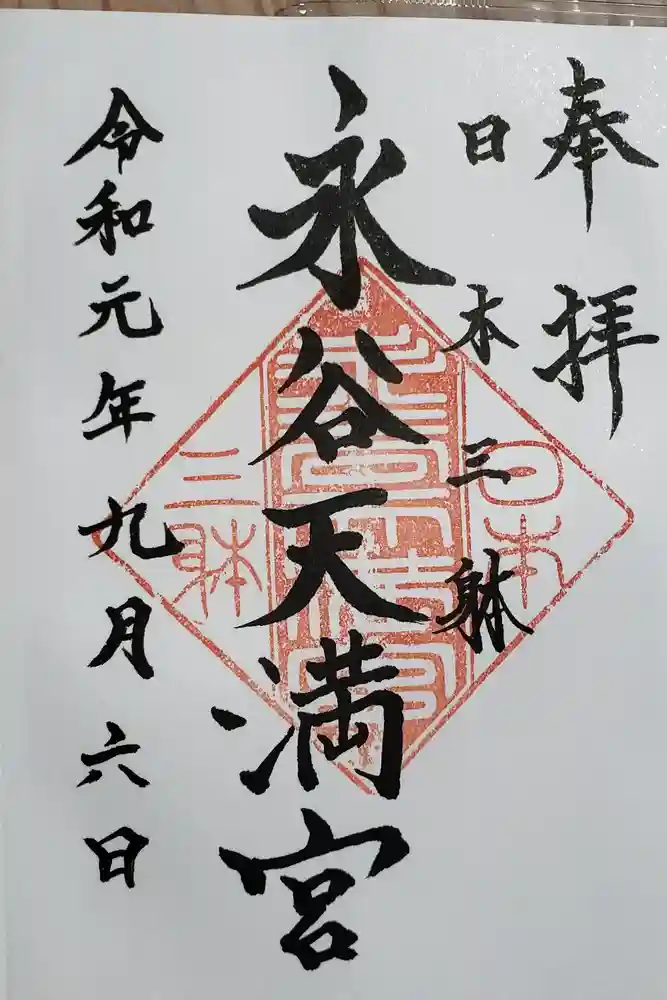 奉拝
日本三躰
永谷天満宮
令和元年九月六日
日本
三躰